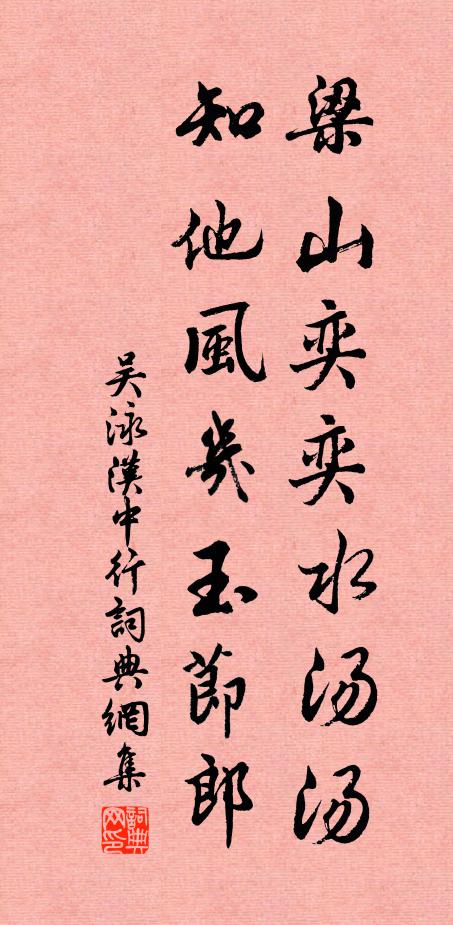 梁山奕奕水汤汤
知他風幾玉節郎
吴泳漢中行詞典網集
詞典网印